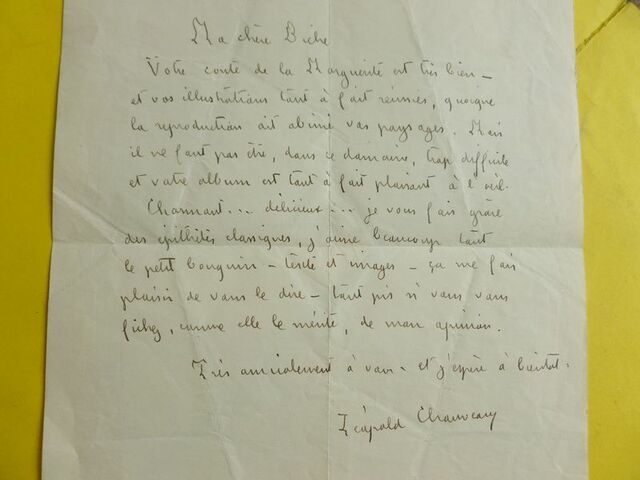 Ma chère Biche
Votre conte de la Marguerite est très bien –
et vos illustrations tout à fait réussies, quoique
la reproduction ait abimé vos paysages. Mais
il ne faut pas être, dans ce domaine, trop difficile
et votre album est tout à fait plaisant à l'œil.
Charmant... délicieux... je vous fais grâce
des épithètes classiques, j'aime beaucoup tout
le petit bouquin – texte et images – ça me fais
plaisir de vous le dire – tant pis si vous vous
fichez, comme elle le mérite, de mon opinion.
Très amicalement à vous – et j'espère à bientôt.
Léopold Chauveau